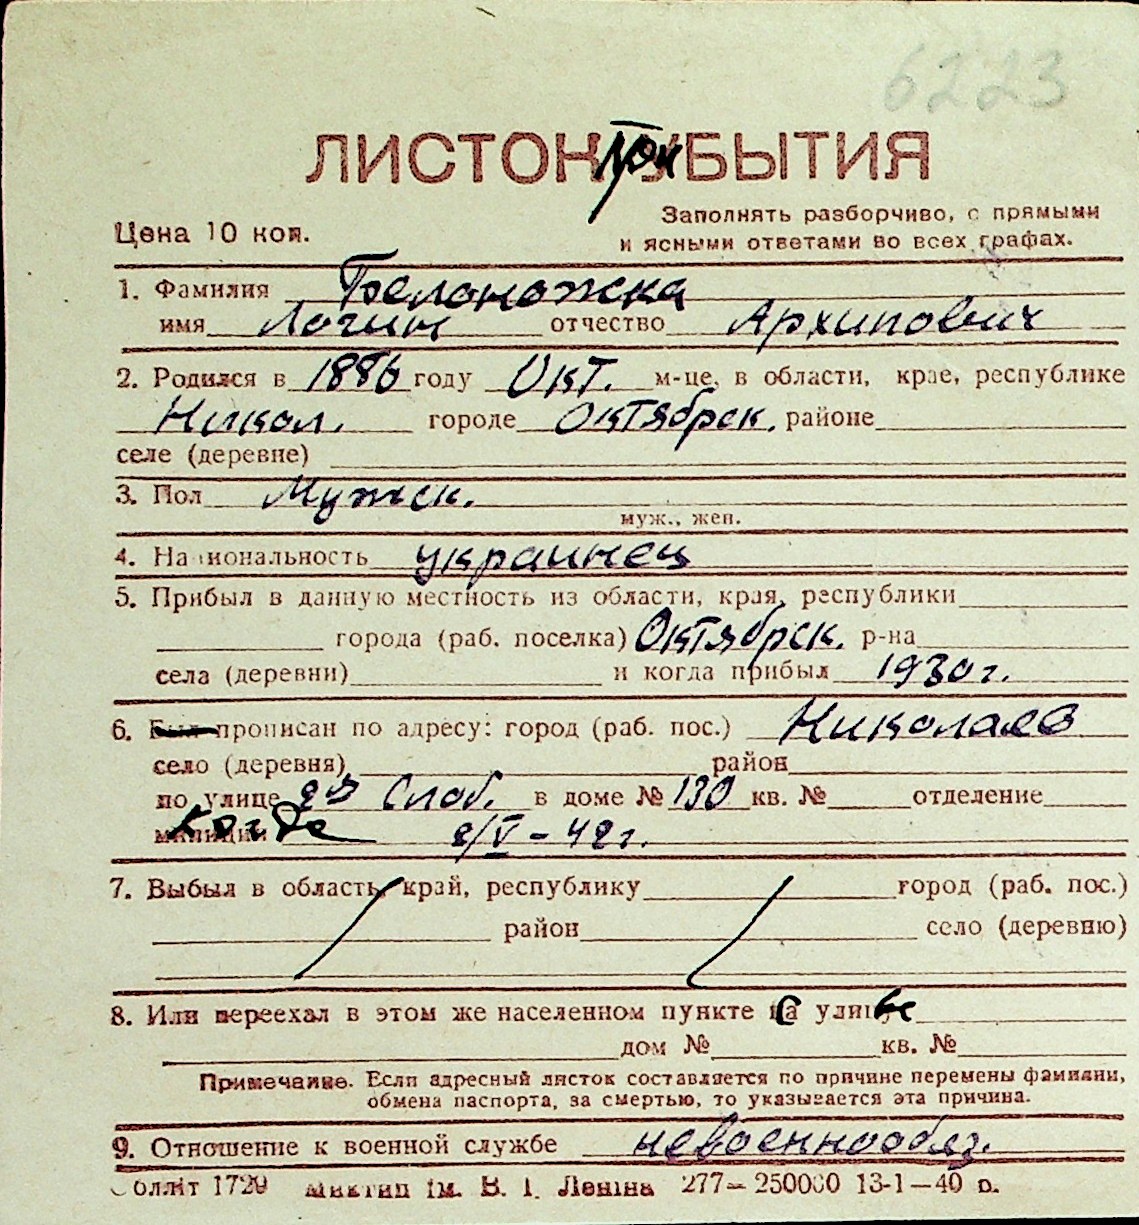 6223
ЛИСТОК при БЫТИЯ
Цена 10 коп.
Заполнять разборчиво, с прямыми
и ясными ответами во всех графах.
1. Фамилия Белоножка
имя Логин отчество Архипович
2. Родился в 1886 году Окт. м-це, в области, крае, республике
Никол. городе Октябрск. районе
селе (деревне)
3. Пол Мужск.
муж., жен.
4. Национальность украинец
5. Прибыл в данную местность из области, края, республики
города (раб. поселка) Октябрск. р-на
села (деревни) и когда прибыл 1930 г.
6. Был прописан по адресу: город (раб. пос.) Николаев
село (деревня) район
по улице 2я Слоб. в доме № 130 кв. № отделение
милиции когда 2/V-42 г.
7. Выбыл в область, край, республику город (раб. пос.)
район село (деревню)
8. Или переехал в этом же населенном пункте с улицы
дом № кв. №
Примечание. Если адресный листок составляется по причине перемены фамилии,
обмена паспорта, за смертью, то указывается эта причина.
9. Отношение к военной службе невоеннообяз.
Обллiт 1729 Миктип iм. В. I. Ленiна 277—250000 13-1—40 р.